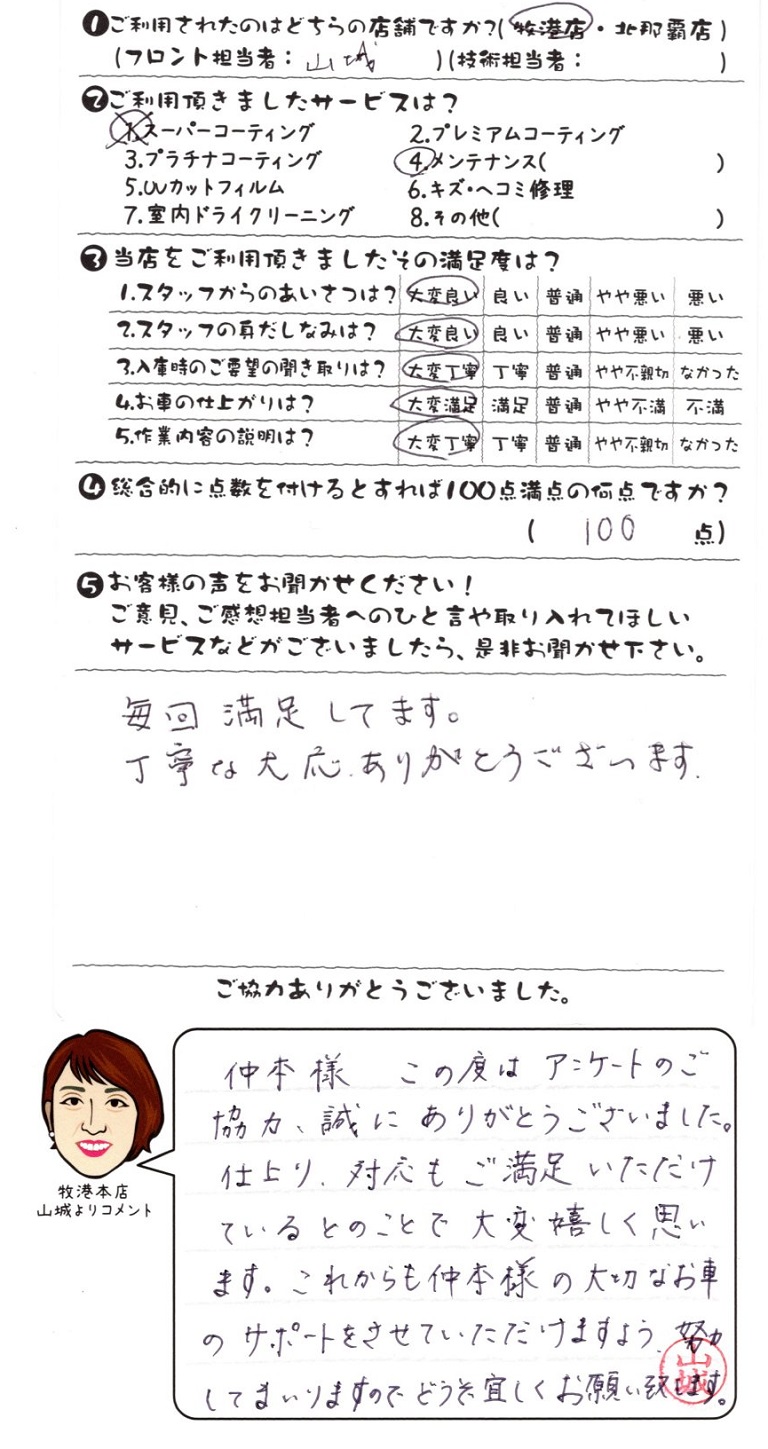 ❶ご利用されたのはどちらの店舗ですか?(牧港店・北那覇店)
(フロント担当者：山城 )(技術担当者： )
❷ご利用頂きましたサービスは？
1.スーパーコーティング 2.プレミアムコーティング
3.プラチナコーティング 4.メンテナンス( )
5.UVカットフィルム 6.キズ・ヘコミ修理
7.室内ドライクリーニング 8.その他( )
❸当店をご利用頂きましたその満足度は？
1.スタッフからのあいさつは? 大変良い 良い 普通 やや悪い 悪い
2.スタッフの身だしなみは? 大変良い 良い 普通 やや悪い 悪い
3.入庫時のご要望の聞き取りは? 大変丁寧 丁寧 普通 やや不親切 なかった
4.お車の仕上がりは? 大変満足 満足 普通 やや不満 不満
5.作業内容の説明は? 大変丁寧 丁寧 普通 やや不親切 なかった
❹総合的に点数を付けるとすれば100点満点の何点ですか?
( 100 点)
❺お客様の声をお聞かせください！
ご意見、ご感想担当者へのひと言や取り入れてほしい
サービスなどがございましたら、是非お聞かせ下さい。
毎回 満足 してます。
丁寧な大応.ありがとうございます.
ご協力ありがとうございました。
仲本様 この度は アンケートのご
協力、誠に ありがとうございました。
仕上り、対応も ご満足 いただけ
ているとのことで 大変 嬉しく 思い
ます。これからも仲本様 の 大切なお車
の サポートをさせていただけますよう、努力
してまいりますので どうぞ宜しく お願い致します。
牧港本店
山城よりコメント
山城